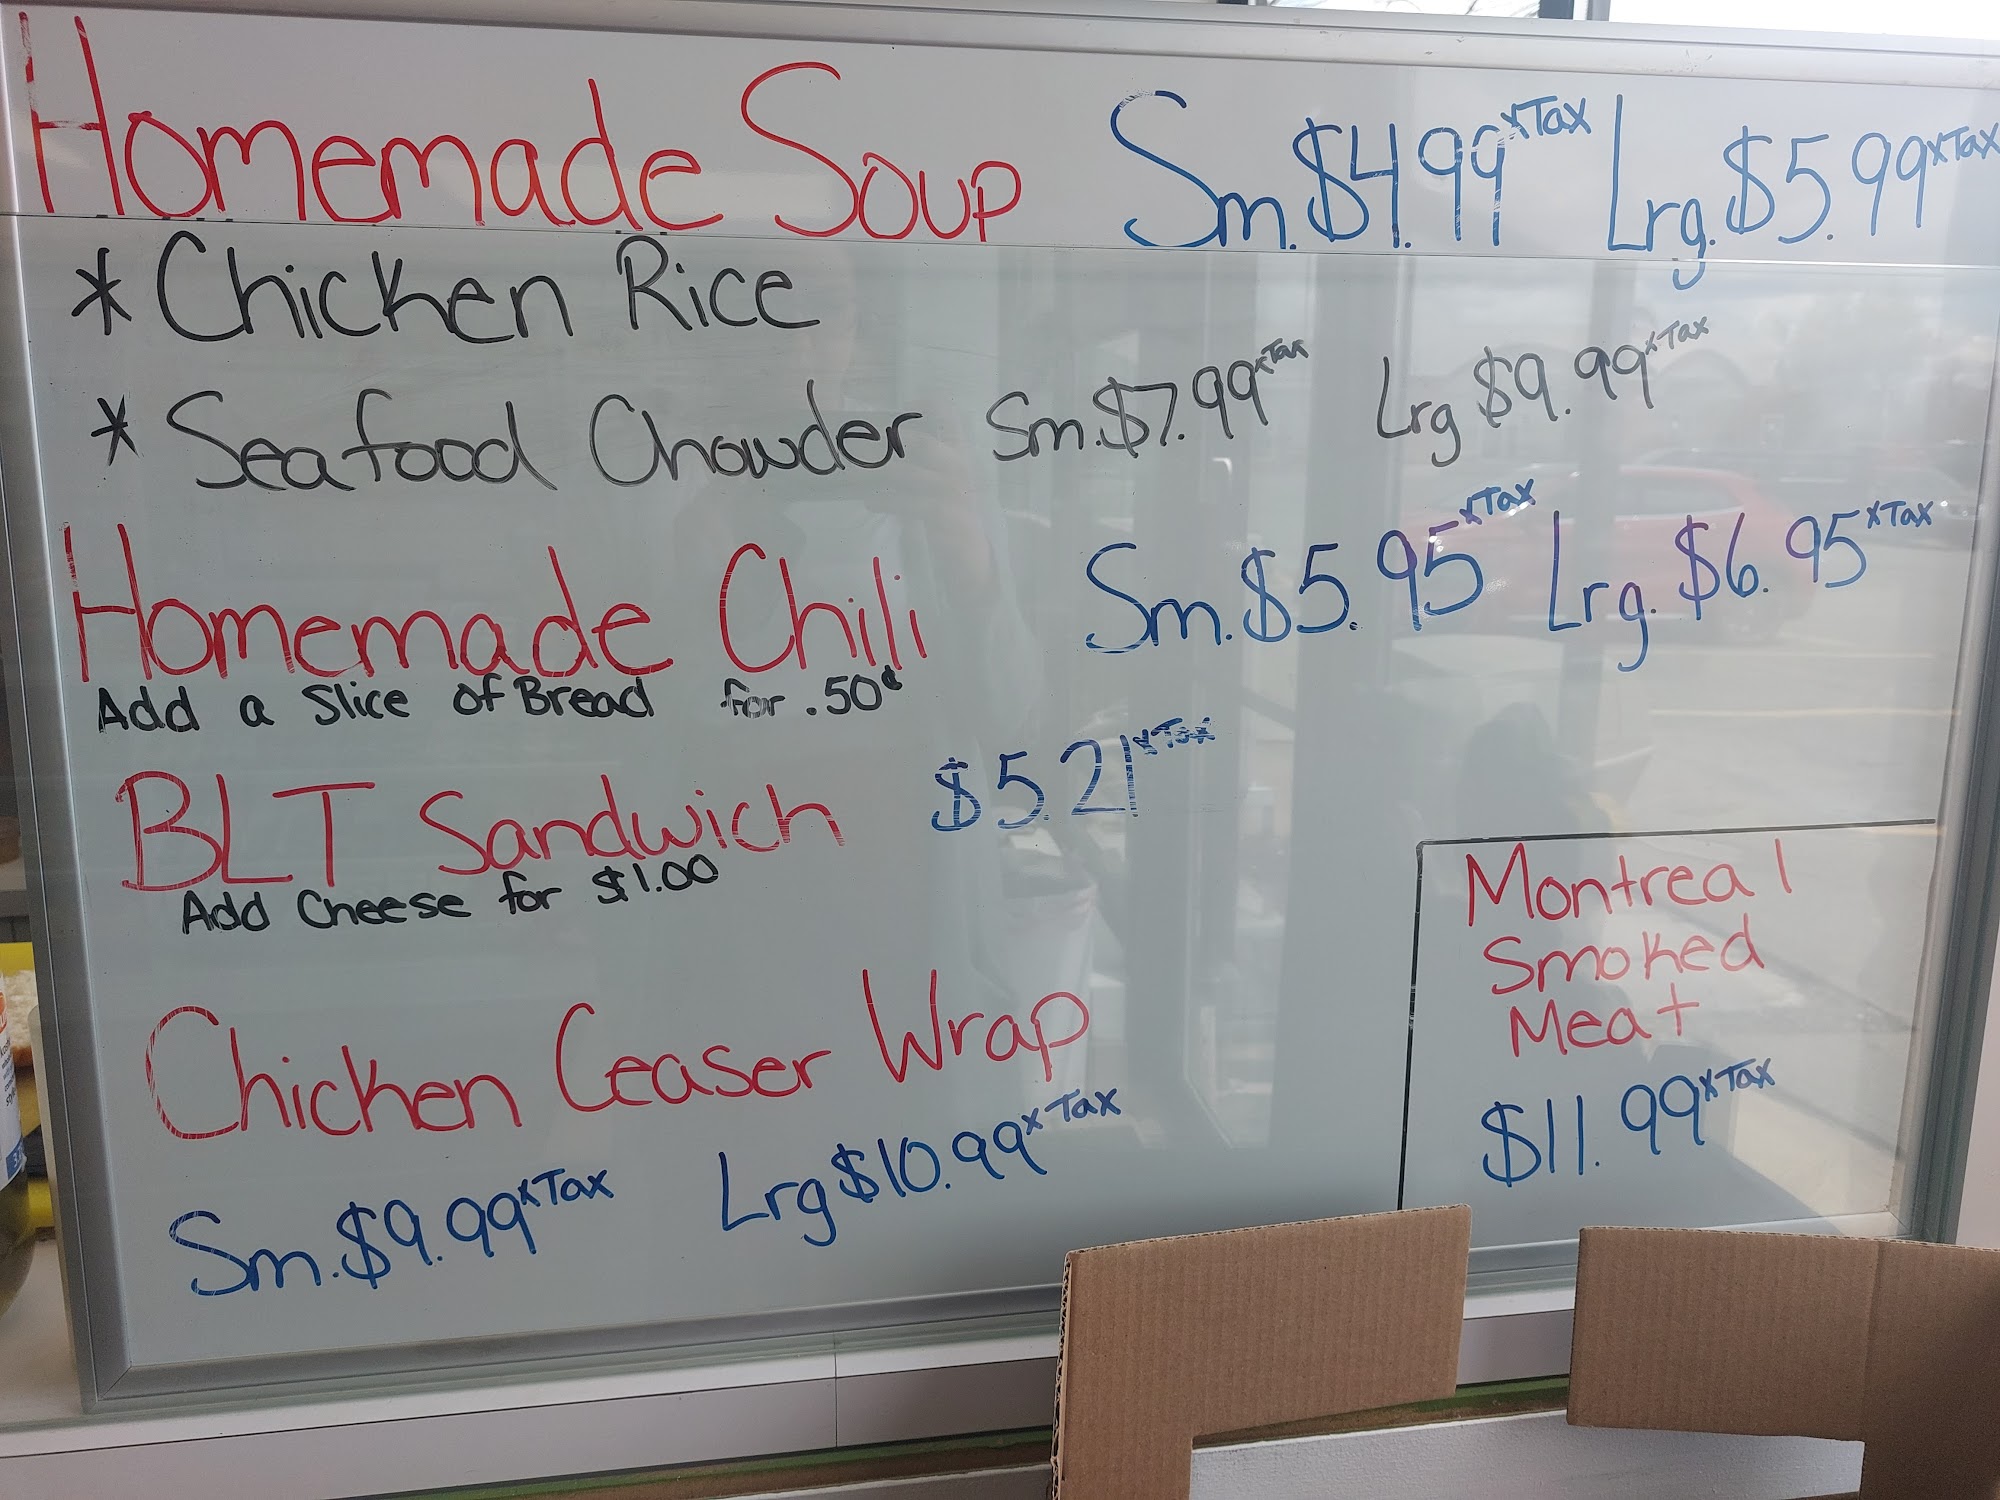 Homemade Soup Sm. $4.99 xTax Lrg. $5.99 xTax
* Chicken Rice
* Seafood Chowder Sm. $7.99 xTax Lrg $9.99 xTax
Homemade Chili Sm. $5.95 xTax Lrg. $6.95 xTax
Add a Slice of Bread for .50¢
BLT Sandwich $5.21 xTax
Add Cheese for $1.00
Chicken Ceaser Wrap
Sm. $9.99 xTax Lrg $10.99 xTax
Montreal
Smoked
Meat
$11.99 xTax